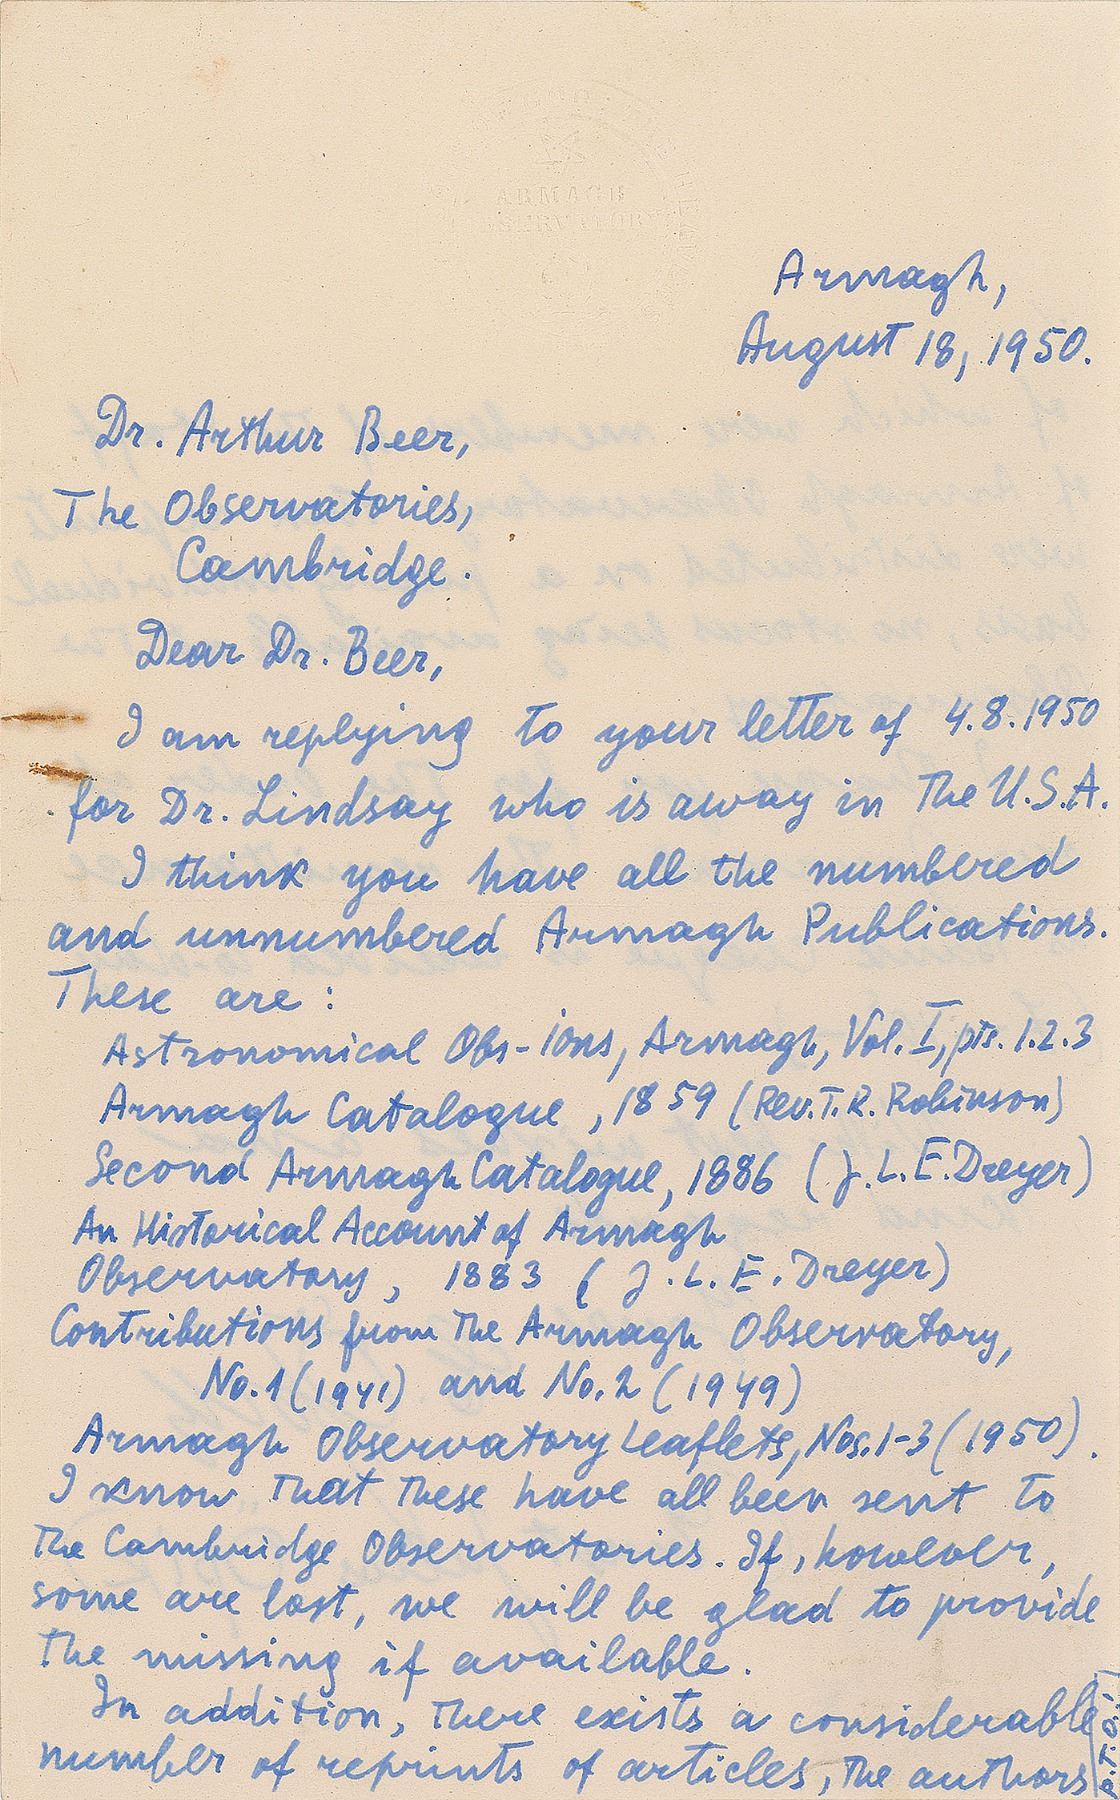 ARMAGH
Armagh,
August 18, 1950.
Dr. Arthur Beer,
The Observatories,
Cambridge.
Dear Dr. Beer,
I am replying to your letter of 4.8.1950
for Dr. Lindsay who is away in the U.S.A.
I think you have all the numbered
and unnumbered Armagh Publications.
These are :
Astronomical Obs-ions, Armagh, Vol. I, pts. 1.2.3
Armagh Catalogue, 1859 (Rev. T. R. Robinson)
Second Armagh Catalogue, 1886 (J. L. E. Dreyer)
An Historical Account of Armagh
Observatory, 1883 (J. L. E. Dreyer)
Contributions from the Armagh Observatory,
No. 1 (1941) and No. 2 (1949)
Armagh Observatory Leaflets, Nos. 1-3 (1950).
I know that these have all been sent to
the Cambridge Observatories. If, however,
some are lost, we will be glad to provide
the missing if available.
In addition, there exists a considerable
number of reprints of articles, the authors
P.T.O.!